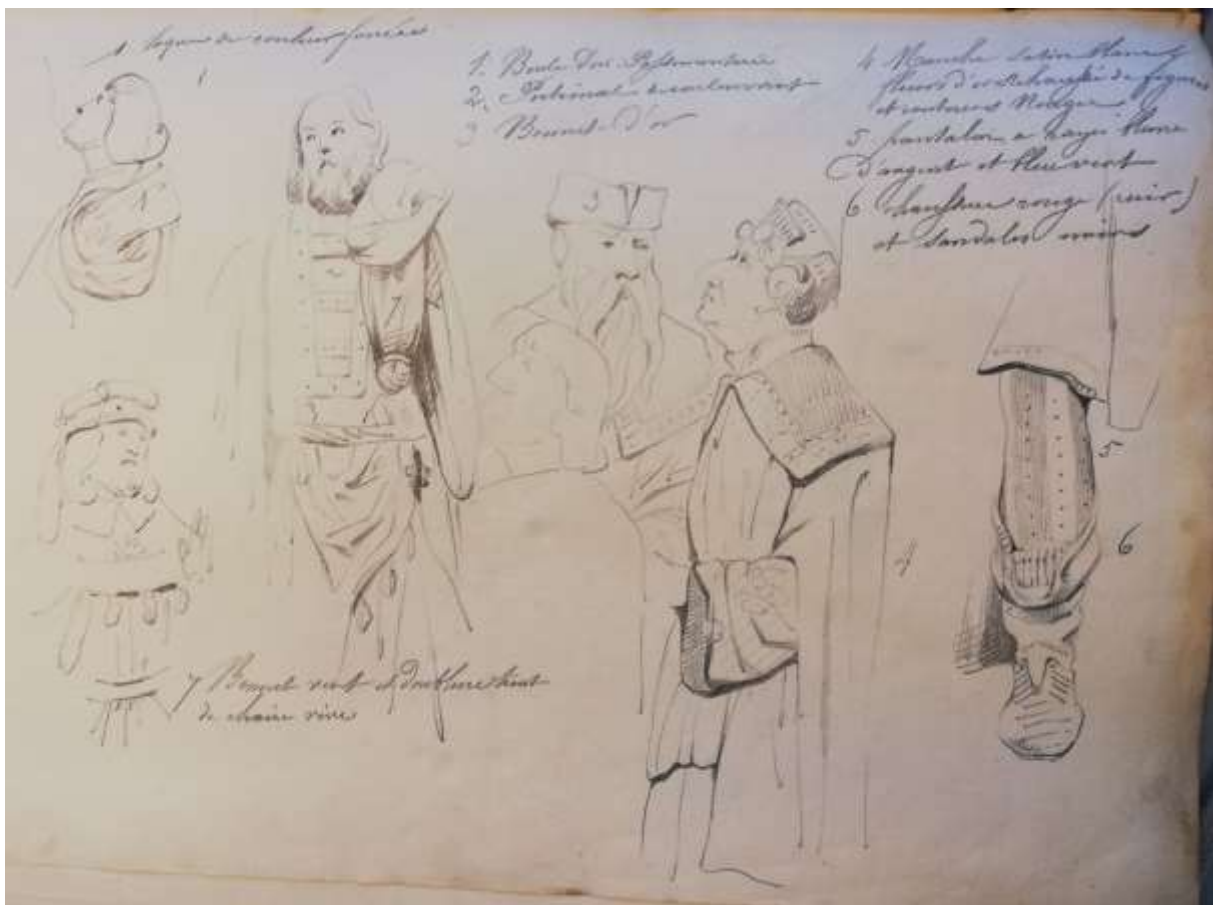 1 toque de couleur foncée
1
1. Boule d'or Passementerie
2.
3 Bonnet d'or
4 Manche Satin blanc
fleurs d'or Rehaussé de
et contours Rouges
5 pantalon a rayé blanc
D'argent et bleu vert
6 chaussure rouge (cuir)
et sandales noires
3
5
6
4
7 Bonnet vert et doublure
de chaire vive